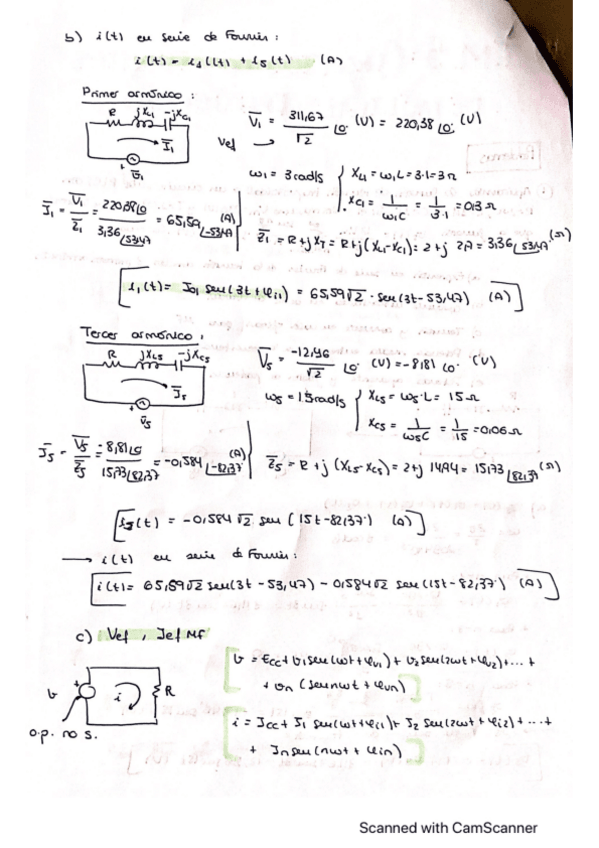 b) i(t) en serie de Fourier:
i(t) = i1(t) + i5(t) (A)
Primer armónico:
R jXL1 -jXC1
I̅1
V̅1
V̅1 = 311,67/√2 ∠0º (V) = 220,38 ∠0º (V)
Vef →
ω1 = 3 rad/s { XL1 = ω1L = 3·1 = 3 Ω
XC1 = 1/ω1C = 1/3·1 = 0,3 Ω
I̅1 = V̅1/Z̅1 = 220,38∠0/3,36∠53,47 = 65,59∠-53,47 (A)
Z̅1 = R + jXT = R + j(XL1-XC1) = 2 + j 2,7 = 3,36∠53,47 (Ω)
[i1(t) = I01 sen(3t + φi1) = 65,59√2 · sen(3t - 53,47) (A)]
Tercer armónico:
R jXL5 -jXC5
I̅5
V̅5
V̅5 = -12,46/√2 ∠0º (V) = -8,81 ∠0º (V)
ω5 = 15 rad/s { XL5 = ω5·L = 15 Ω
XC5 = 1/ω5C = 1/15 = 0,06 Ω
I̅5 = V̅5/Z̅5 = 8,81∠0/15,73∠82,37 = -0,584∠-82,37 (A)
Z̅5 = R + j(XL5-XC5) = 2 + j 14,94 = 15,73∠82,37 (Ω)
[i5(t) = -0,584√2 sen(15t - 82,37º) (A)]
→ i(t) en serie de Fourier:
[i(t) = 65,59√2 sen(3t - 53,47) - 0,584√2 sen(15t - 82,37º) (A)]
c) Vef, Ief MF
v i R
o.p. no s.
v = Ecc + v1 sen(ωt + φv1) + v2 sen(2ωt + φv2) + ... +
+ vn (sen nωt + φvn)
i = Icc + I1 sen(ωt + φi1) + I2 sen(2ωt + φi2) + ... +
+ In sen(nωt + φin)
Scanned with CamScanner